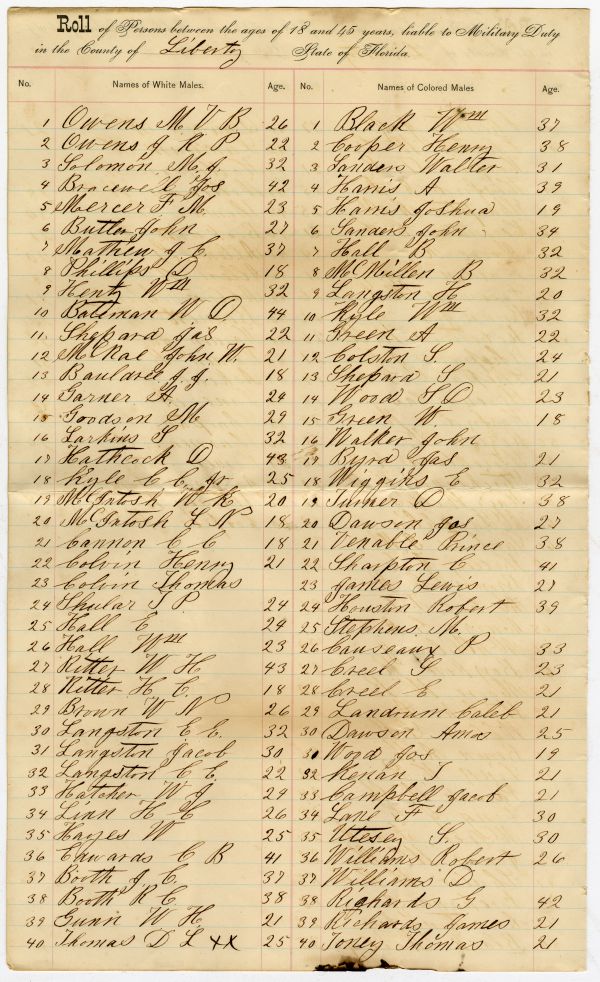 Roll of Persons between the ages of 18 and 45 years, liable to Military Duty
in the County of Liberty State of Florida.
No. Names of White Males. Age. No. Names of Colored Males Age.
1 Owens M V B 26 1 Black Wm 37
2 Owens J R P 22 2 Cooper Henry 38
3 Solomon M. J. 32 3 Sanders Walter 31
4 Bracewell Jos 42 4 Harris A 39
5 Mercer F M 23 5 Harris Joshua 19
6 Butler John 27 6 Sanders John 34
7 Mathew J C. 37 7 Hall B 32
8 Phillips D 18 8 McMillen B 32
9 Hentz Wm 32 9 Langston H 20
10 Bateman W O 44 10 Kyle Wm 32
11 Shepard Jas 22 11 Green A 22
12 McRae John W. 21 12 Colston S. 24
13 J. J. 18 13 Shepard S 21
14 Garner A. 24 14 Wood S D 23
15 Goodson M 29 15 Green W 18
16 Larkins S 32 16 Walker John
17 Hathcock D 43 17 Byrd Jas 21
18 Kyle C C. Jr 25 18 Wiggins E 32
19 McIntosh W K 20 19 Turner D 38
20 McIntosh L N 18 20 Dawson Jos 27
21 Cannon C C 18 21 Venable Prince 38
22 Colvin Henry 21 22 Sharpton C 41
23 Colvin Thomas 23 James Lewis 27
24 Shular T P 24 24 Houston Robert 39
25 Hall E 29 25 Stephens. M.
26 Hall Wm 23 26 Causeaux P 33
27 Ritter W H 43 27 Creel S 23
28 Ritter H C. 18 28 Creel E 21
29 Brown W N 26 29 Landrum Caleb 21
30 Langston E E. 32 30 Dawson Amos 25
31 Langston Jacob 30 31 Wood Jos 19
32 Langston C C. 22 32 Kenan T 21
33 Hatcher W J 29 33 Campbell Jacob 21
34 Linn H C 26 34 Lane F 30
35 Hayes W 25 35 Utesey S. 30
36 Edwards C B 41 36 Williams Robert 26
37 Booth J C. 37 37 Williams D
38 Booth R C 38 38 Richards G 42
39 Gunn W H 21 39 Richards James 21
40 Thomas D L xx 25 40 Toney Thomas 21